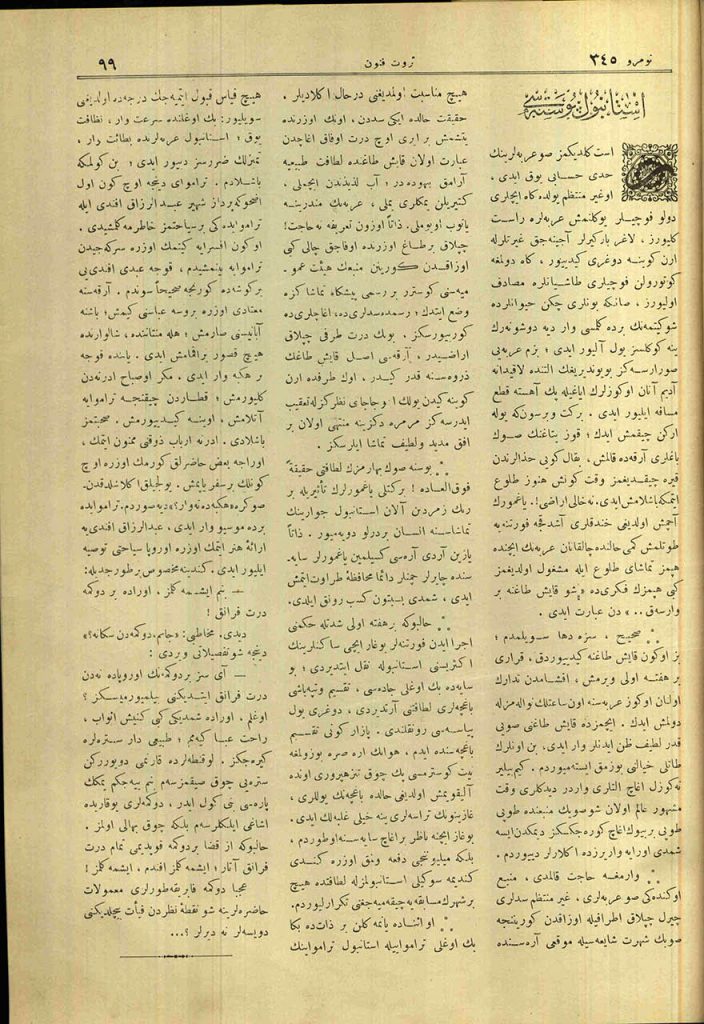 نومرو ٣٤٥
ثروت فنون
٩٩
استانبول پوسته‌سی
است كلديكمز صو عربه‌لرينك
حدی حسابی يوق ايدی ،
اوغير منتظم يولده كاه ايچلری
دولو فوچيلر يوكلنمش عربه‌لره راست
كليورز ، لاغر باركيرلر آجينه‌جق غيرتلرله
ارن كوينه دوغری كيدييور ، كاه دولمغه
كوتورولن فوچيلری طاشيانلره مصادف
اوليورز ، صانكه بونلری چكن حيوانلرده
شوكيتمه‌نك برده كلمسی وار ديه دوشونه‌رك
ينه كوكلسز يول آليور ايدی ؛ بزم عربه‌يی
صورارسه‌كز بويونديريغك التنده لاقيدانه
آديم آتان اوكوزلرك اياغيله پك آهسته قطع
مسافه ايليور ايدی . بركت ويرسون‌كه يوله
ارکن چيقمش ايدك ؛ قوز يتاغنك صوك
باغلری آرقه‌ده قالمش ، بقال كويی حذالرندن
قيره چيقديغمز وقت كونش هنوز طلوع
ايتمكه‌باشلامش‌ايدی. نه خالی اراضی! . ياغمورك
آچمش اولديغی خندقلری آشدقجه فورتنه‌يه
طوتلمش كمی حالنده چالقانان عربه‌نك ايچنده
هپمز تماشای طلوع ايله مشغول اولديغمز
كبی هپمزك فكری‌ده «شو قايش طاغنه بر
وارسه‌ق . . » دن عبارت ايدی .
صحيح ، سزه دها سويلمدم ؛
بز اوكون قايش طاغنه كيدييوردق . قراری
بر هفته اولی ويرمش ، اقشامدن تدارك
اولنان اوكوز عربه‌سنه اون ساعتلك نواله‌مزله
دولمش ايدك . ايچمزده قايش طاغنی صويی
قدر لطيف ظن ايدنلر وار ايدی، بن اونلرك
طاتلی خيالنی بوزمق ايسته‌ميوردم . كيم‌بيلير
نه‌كوزل اغاج التلری واردر ديدكلری وقت
مشهور عالم اولان شو صويك منبعنده طوبی
طوبی بر بيوك اغاج كوره‌جكسكز ديمكدن ايسه
شمدی اورايه واريرزده اكلارلر ديیوردم .
وارمغه حاجت قالمدی ، منبع
اوكنده‌كی صو عربه‌لری ، غير منتظم سدلری
چيرل چپلاق اطرافيله اوزاقدن كورينجه
صويك شهرت شايعه‌سيله موقعی آره‌سنده
هيچ مناسبت اولمديغنی درحال اكلاديلر .
حقيقت حالده ايكی سددن ، اونك اوزرنده
يتشمش بر ايری اوچ درت اوفاق اغاجدن
عبارت اولان قايش طاغنده لطافت طبيعيه
آرامق بيهوده‌در ؛ آب لذيذندن ايچملی ،
كتيريلن يمكلری يملی ، عربه‌نك مندرينه
ياتوب اويوملی . ذاتاً اوزون تعريفه نه‌حاجت!
چپلاق بر طاغ اوزرنده اوفاجق چالی كبی
اوزاقدن كورينن منبعك هيئت عمو-
ميه‌سنی كوستر بر رسمی پيشگاه تماشاكزه
وضع ايتدك ؛ رسمده سدلری‌ده، اغاجلری‌ده
كوريورسكز . بونك درت طرفی چپلاق
اراضيدر ، آرقه‌سی اصل قايش طاغنك
ذروه‌سنه قدر كيدر ، اوك طرفده ارن
كوينه كيدن يولك اعوجاجاى نظركزله تعقيب
ايدرسه‌كز مرمره دكزينه منتهی اولان بر
افق مديد ولطيف تماشا ايلرسكز .
بوسنه صوك بهارمزك لطافتی حقيقةً
فوق‌العاده ! بركتلی ياغمورلرك تأثيريله بر
رنك زمردين آلان استانبول جوارينك
تماشاسنه انسان بردرلو دويه‌ميور . ذاتاً
يازين آردی آره‌سی كسيلمين ياغمورلر سايه-
سنده چايرلر چمنلر دائما محافظهٔ طراوت ايتمش
ايدی ، شمدی بسبتون كسب رونق ايلدی .
حالبوكه بر هفته اولی شدتله حكمنی
اجرا ايدن فورتنه‌لر بوغاز ايچی ساكنلرينك
اكثريسنی استانبوله نقل ايتديردی ؛ بو
سايه‌ده بك اوغلی جاده‌سی ، تقسيم وتپه‌باشی
باغچه‌لری لطافتنی آرتديردی ، دوغری يول
پياسه‌سی رونقلندی . بازار كونی تقسيم
باغچه‌سنده ايدم ، هوانك اره صره بوزولمغه
نيت كوسترمسی پك چوق تنزهپروری اونده
آليقويمش اولديغی حالده باغچه‌نك يوللری ،
غازينونك تراسه‌لری ينه خيلی غلبه‌لك ايدی .
بوغاز ايچنه ناظر بر اغاج سايه‌سنه اوطوردم ،
بلكه ميليونجی دفعه وفق اوزره كندی
كنديمه سوكيلی استانبولمزله لطافتده هيچ
برشهرك مسابقه‌يه چيقه‌ميه‌جغنی تكرارليوردم.
او اثناده يانمه كلن بر ذات‌ده بكا
بك اوغلی ترامواييله استانبول تراموايينك
هيچ قياس قبول ايتميه‌جك درجه‌ده اولديغنی
سويليور: بك اوغلنده سرعت وار ، نظافت
يوق ؛ استانبول عربه‌لرنده بطائت وار ،
تميزلك ضررسز دييور ايدی ؛ بن كولمكه
باشلادم . تراموای دينجه اوچ كون اول
اضحوكه‌پرداز شهير عبد الرزاق افندی ايله
تراموايده‌كی بر سياحتمز خاطرمه كلمشيدی .
اوكون افسرايه كيتمك اوزره سركه‌جيدن
تراموايه بينمشيدم ، قوجه عبدی افندی‌يی
بركوشه‌ده كورنجه صحيحاً سوندم . آرقه‌سنه
معتادی اوزره بروسه عباسنی كيمش؛ باشنه
آبانيسنی صارمش ؛ هله متانتنده ، شالوارنده
هيچ قصور براقمامش ايدی . ياننده قوجه
بر هكبه وار ايدی . مكر اوصباح ادرنه‌دن
كليورمش ؛ قطاردن چيقنجه تراموايه
آتلامش ، اوينه كيدييورمش . صحبتمز
باشلادی . ادرنه ارباب ذوقنی ممنون ايتمك ،
اوراجه بعض حاضرلق كورمك اوزره اوچ
كونلك برسفر ياپمش . يولجيلق‌اكلاشلدقدن.
صوكره‌«هكبه‌ده‌نه‌وار؟»ديه‌صوردم. تراموايده
برده موسيو وار ايدی ، عبدالرزاق افندی‌يه
ارائهٔ هنر ايتمك اوزره اوروپا سياحتی توصيه
ايليور ايدی. كندينه مخصوص برطور جديله:
— بنم ايشمه كلمز . اوراده بر دوكمه
درت فرانق !
ديدی. مخاطبی: «جانم،دوكمه‌دن سكا نه؟»
دينجه شو تفصيلاتی ويردی :
— آی سز بر دوكمه‌نك اوروپاده نه‌دن
درت فرانق ايتديكنی بيلميورميسكز ؟
اوغلم ، اوراده شمديكی كبی كنيش اثواب ،
راحت عبا كيه‌مم ؛ طبيعی دار ستره‌لره
كيره‌جكز . لوقنطه‌لرده قارنمی دويوررکن
ستره‌يی چوق صيقمزسه‌م ينم ييه‌جكم يمكك
پاره‌سی بنی كول ايدر ، دوكمه‌لری يوقاريده
اشاغی ايلكلرسه‌م بلكه چوق بهالی اولمز .
حالبوكه از قضا بردوكمه قويديمی تمام درت
فرانق آتار ؛ ايشمه كلمز افندم ، ايشمه كلمز !
عجبا دوكمه فابريقه‌طورلری معمولات
حاضره‌لرينه شو نقطهٔ نظردن فيأت بيچلديكنی
دويسه‌لر نه ديرلر ؟ . . .